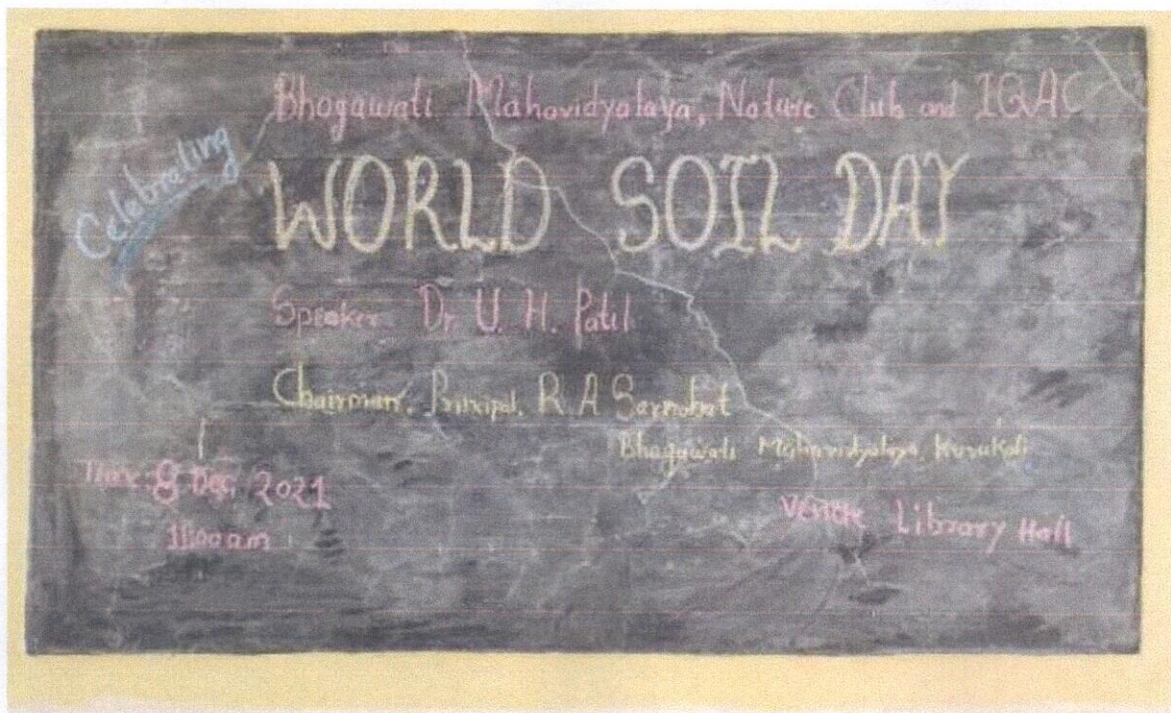 Bhogawati Mahavidyalaya, Nature Club and IQAC
Celebrating
WORLD SOIL DAY
Speaker Dr U. H. Patil
Chairman. Principal. R A Sarnobat
Bhagawati Mahavidyalaya, Kurukali
8 Dec, 2021
11.00 a.m
Venue Library Hall